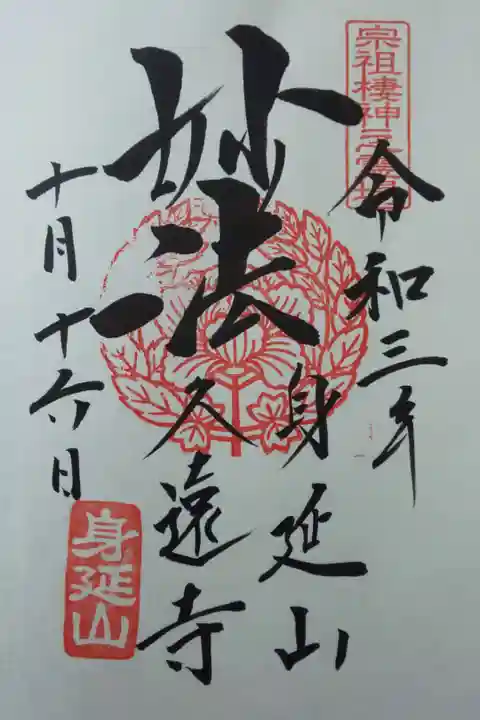 宗祖棲神之霊場
令和三年
妙法
身延山
久遠寺
十月十六日
身延山